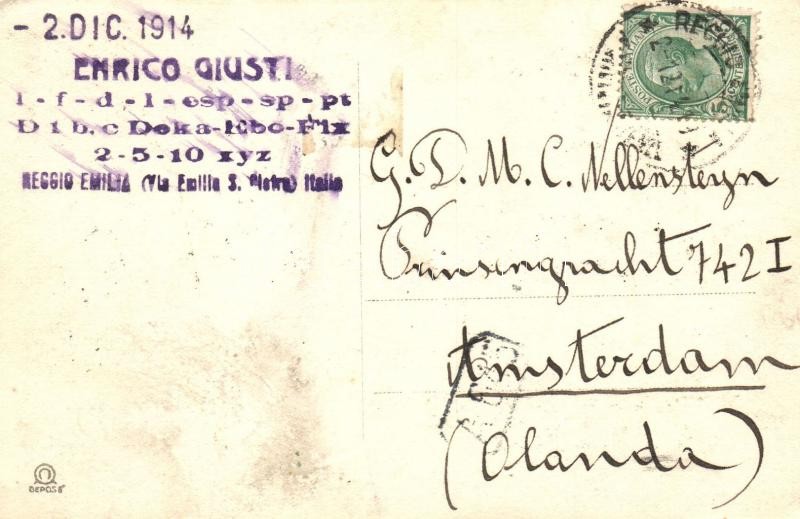 - 2. DIC. 1914
ENRICO GIUSTI
1 - f - d - l - esp - sp - pt
2-5-10 xyz
REGGIO EMILIA (Via Emilia S. Pietro) Italia
G. D. M. C. Nellensteyn
Prinsengracht 742 I
Amsterdam
(Olanda)
POSTE ITALIANE
REGGIO
DEPOSÉ